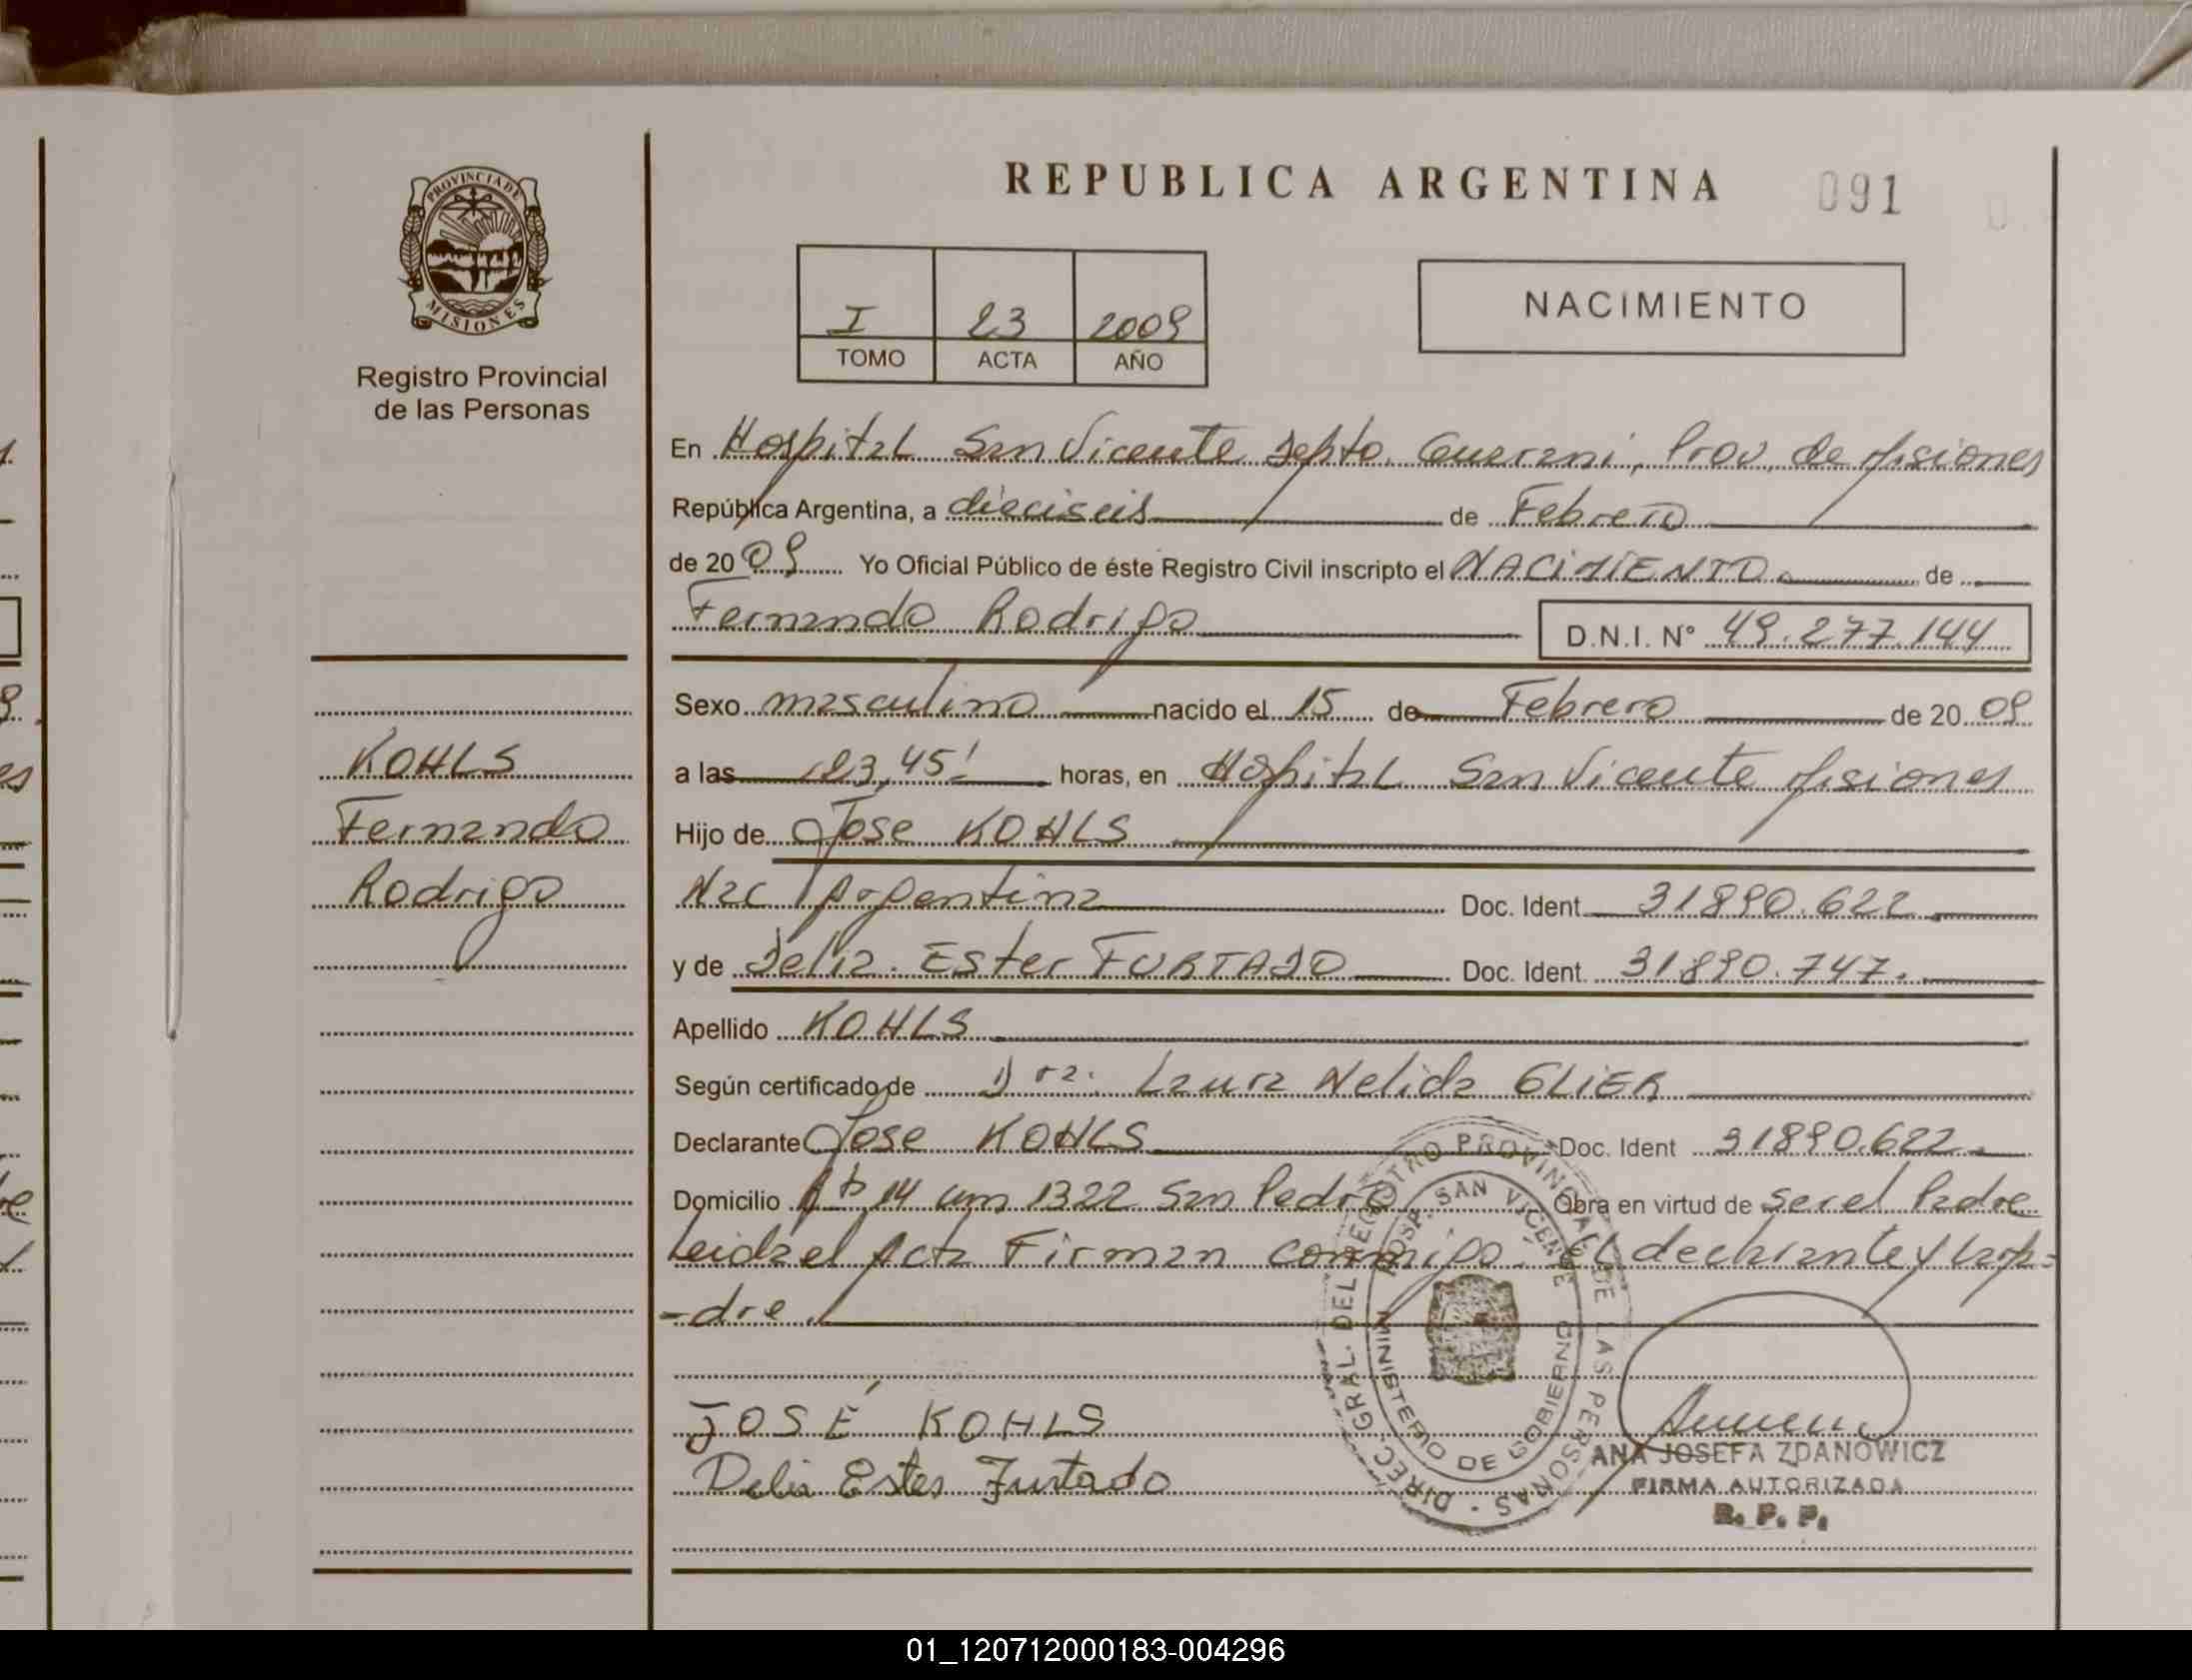 REPUBLICA ARGENTINA
091
PROVINCIA DE
MISIONES
Registro Provincial
de las Personas
I 23 2009
TOMO ACTA AÑO
NACIMIENTO
En Hospital San Vicente Depto. Guarani, Prov. de Misiones
República Argentina, a dieciseis de Febrero
de 2009 Yo Oficial Público de éste Registro Civil inscripto el NACIMIENTO de
Fernando Rodrigo D.N.I. N° 49.277.144
Sexo masculino nacido el 15 de Febrero de 2009
a las 23,45' horas, en Hospital San Vicente Misiones
Hijo de Jose KOHLS
Nac Argentina Doc. Ident 31890.622
y de Delia Ester FURTADO Doc. Ident 31890.747.
Apellido KOHLS
Según certificado de Dra. Laura Nelida GLIER
Declarante Jose KOHLS Doc. Ident 31890.622
Domicilio 14 Km 1322 San Pedro Obra en virtud de ser el Padre
Leida el Acta Firman conmigo el declarante y la Ma-
-dre
JOSÉ KOHLS
Delia Ester Furtado
KOHLS
Fernando
Rodrigo
DIREC. GRAL. DEL REGISTRO PROVINCIAL DE LAS PERSONAS
HOSP. SAN VICENTE
MINISTERIO DE GOBIERNO
ANA JOSEFA ZDANOWICZ
FIRMA AUTORIZADA
R. P. P.
01_120712000183-004296